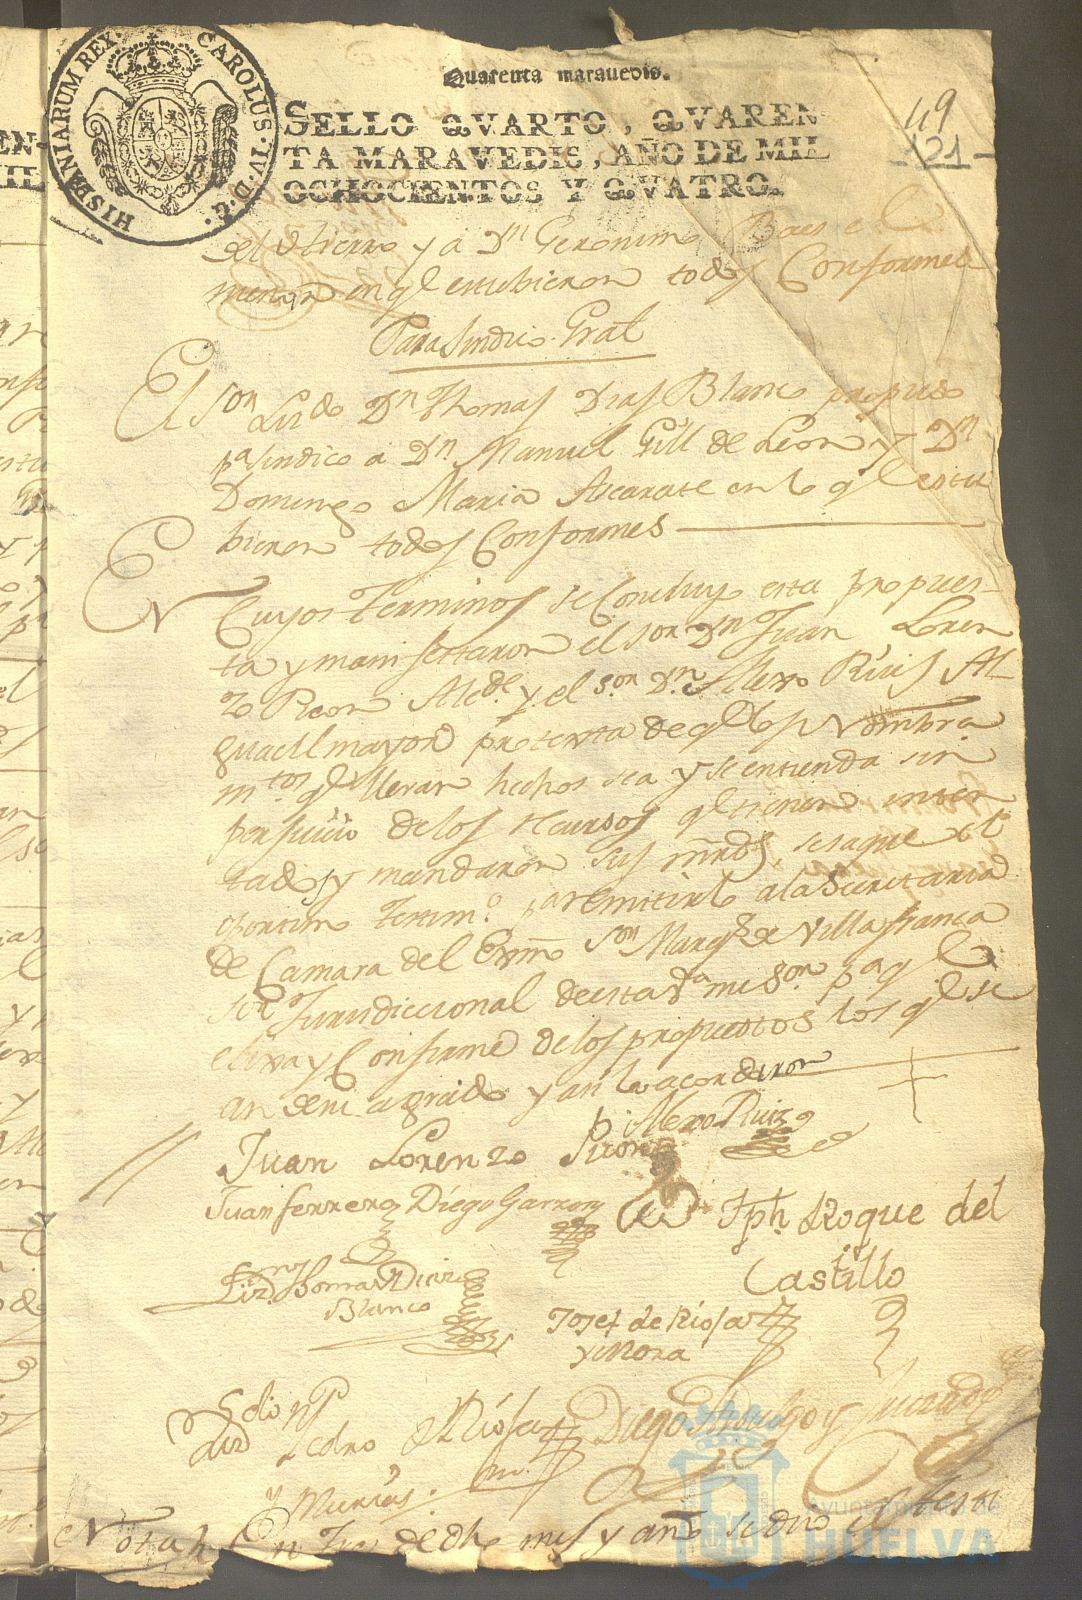 HISPANIARUM REX. CAROLUS. IV. D. G.
Quarenta maravedis.
SELLO QVARTO, QVAREN
TA MARAVEDIS, AÑO DE MIL
OCHOCIENTOS Y QVATRO.
49
121
y a Dn Geronimo
en ql estubieron todos Conforme
Para Sindico Gral
El Sor Lizdo Dn Thomas Dias Blanco propuso
pa sindico a Dn Manuel Gill de Leon y Dn
Domingo Maria Ascarate en lo ql estu
bieron todos Conformes
En Cuyos Terminos se Concluyo esta propues-
ta y manifestaron el Sor Dn Juan Loren
zo Alcde y el Sor Dn Alexo Ruis Al-
guacil mayor protexta de ql los Nombra
mtos ql llevan hechos sea y se entienda sin
perjuicio de los recursos ql tienen inten
tados y mandaron sus mrds, se saque el
oportuno Testimo pa remitirlo a la Secretaria
de Camara del Exmo Sor Marqs de Villafranca
Jurisdiccional de esta Va mi Sor pa ql
elixa y Confirme de los propuestos los ql se
an de su agrado y asi lo acordaron
Alexo Ruiz
Juan Lorenzo
Juan Ferrero Diego Garzon Jph Roque del
Castillo
Lizdo Thomas Diaz
Blanco
Josef de Rioja
y Mora
Pedro de Rioja
Diego
y Murias.
Nota En tres de dho mes y año se dio
Ayuntamiento de
HUELVA